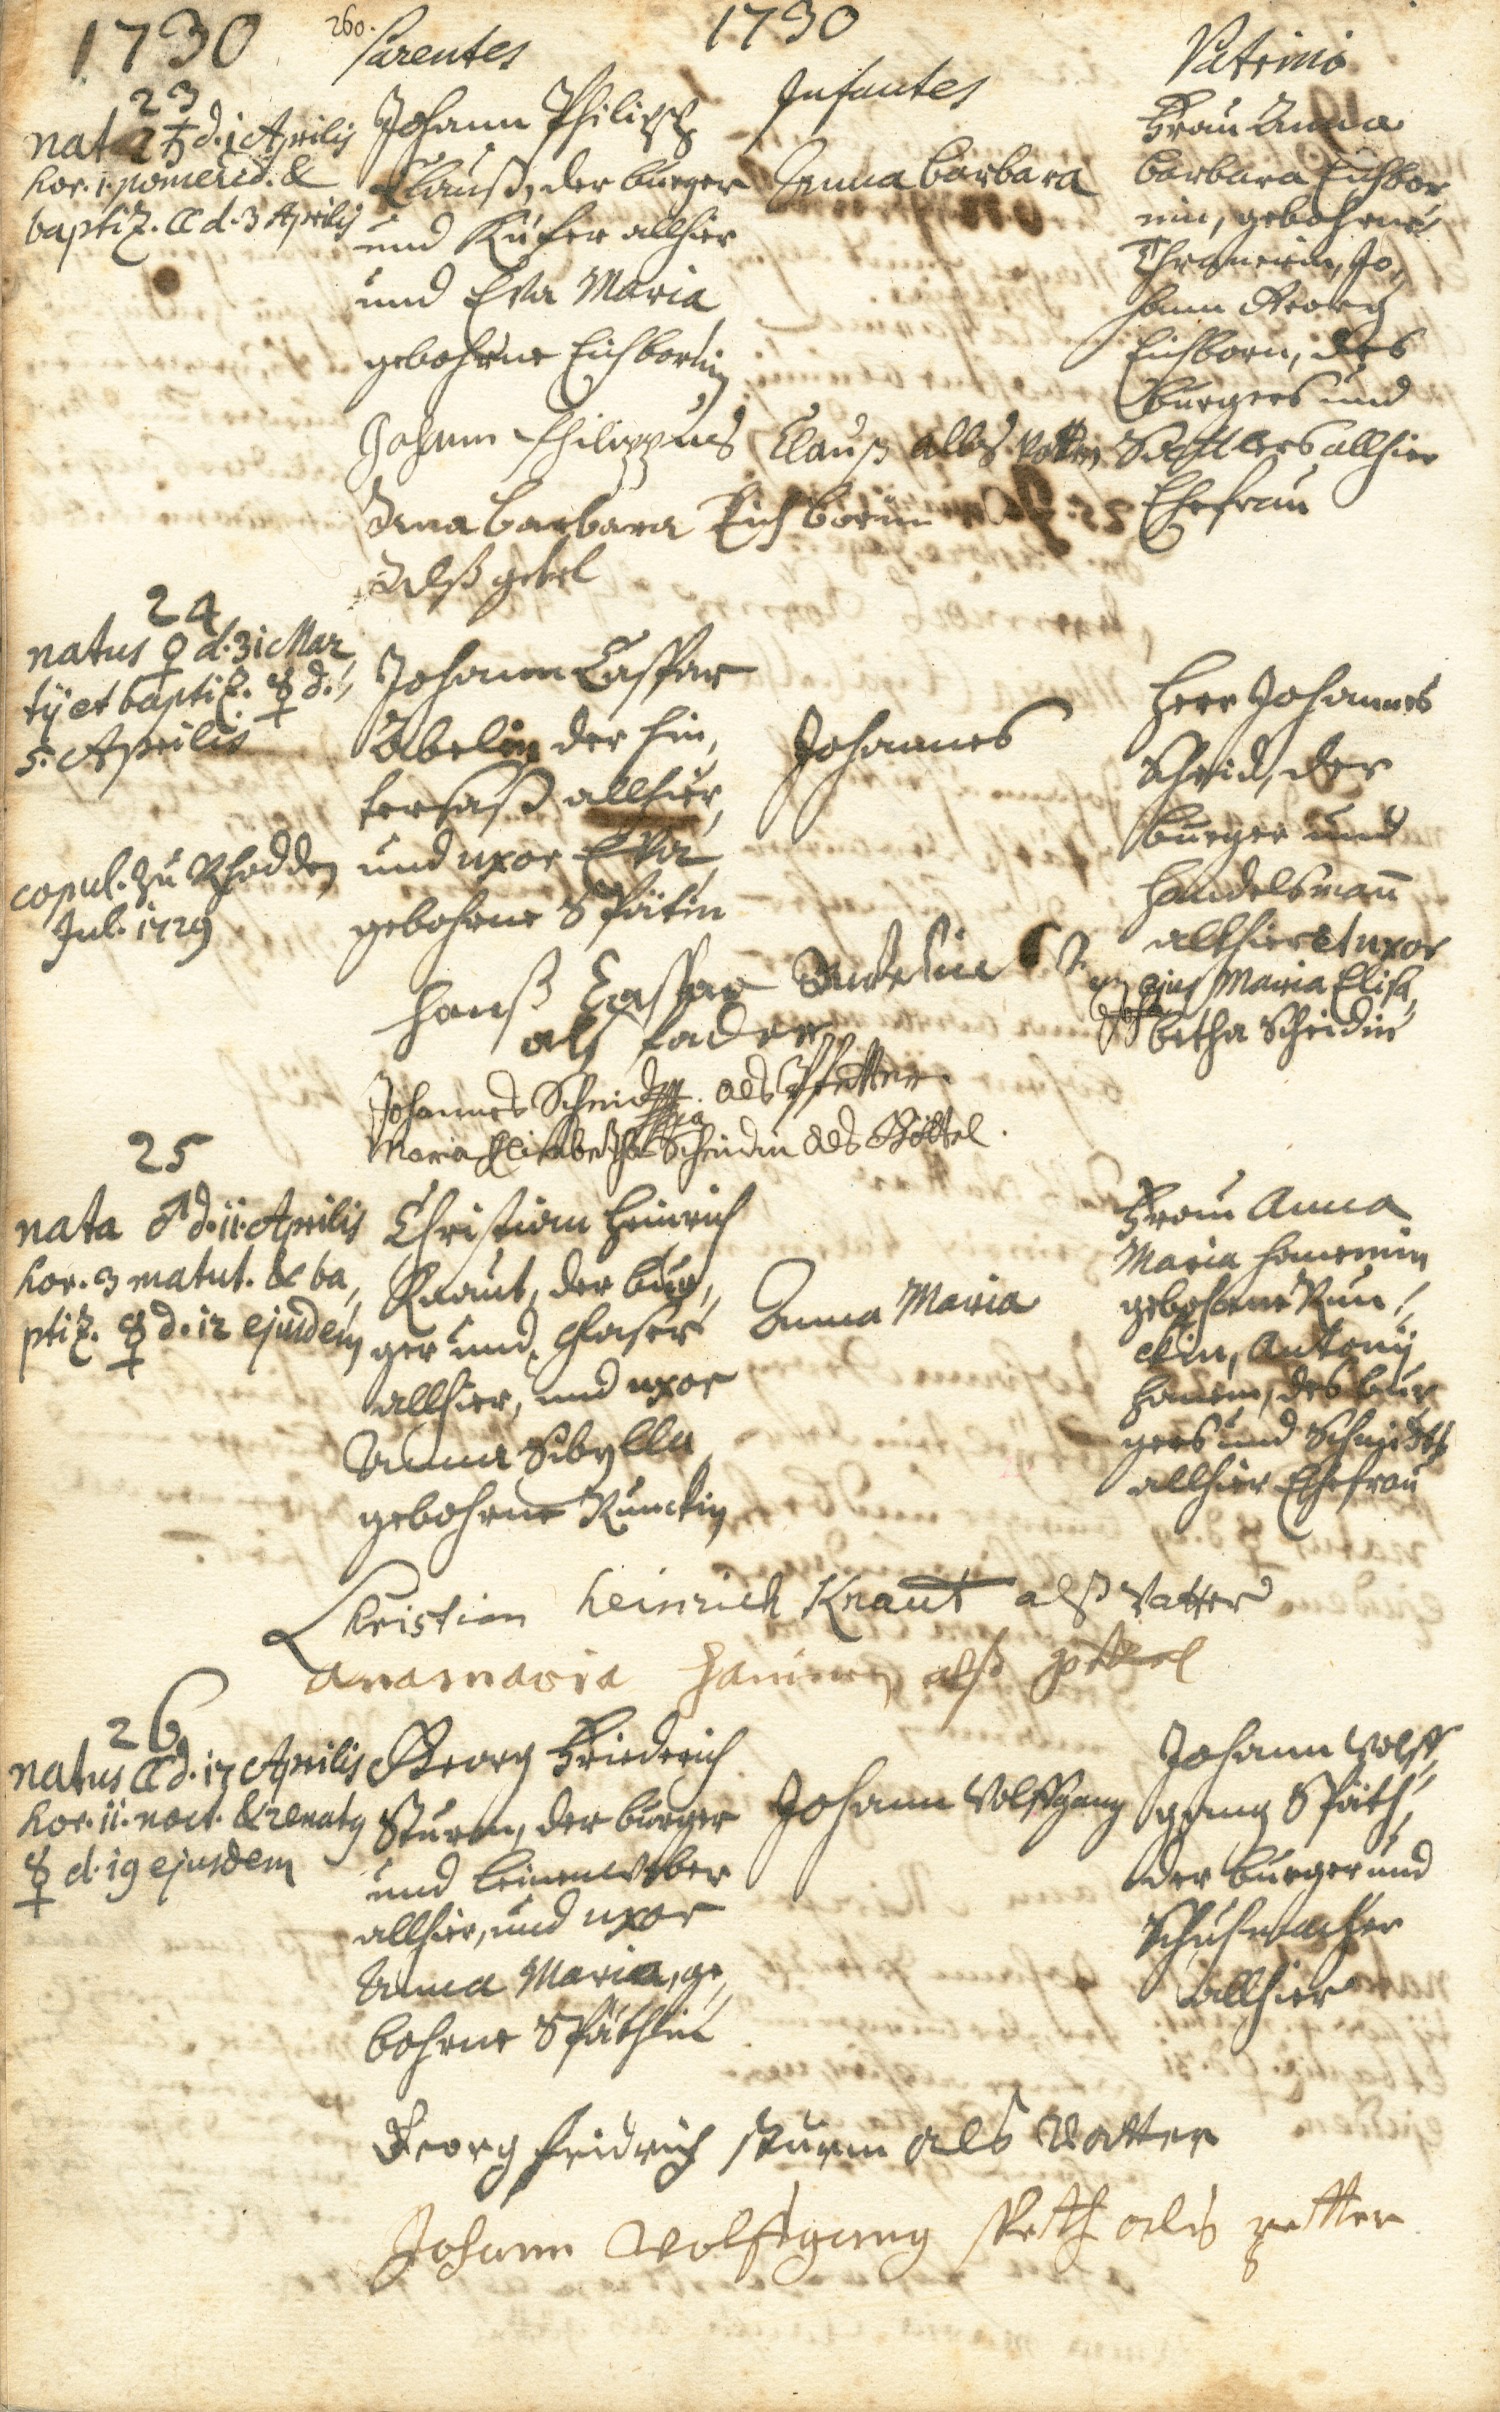 1730
260.
1730
Parentes
Infantes
Patrini
23
nat ♄ d. 1 Aprilis
hor. 1. pomerid. &
baptiz. ☾ d. 3 Aprilis
Johann Philipß
Clauß, der burger
und Küfer allhier
und Eva Maria
gebohrne Eichbornin
Anna Barbara
Frau Anna
Barbara Eichbor
nin, gebohrne
Jo,
hann Georg
Eichborn, des
burgers und
Sattlers allhier
Ehefrau
Johann Philippus Clauß alls Vatter
Anna barbara Eichbornin
Alß getel
24
natus ♀ d. 31 Mar,
tij et baptiz. ☿ d.
5. Aprilis
copul. zu Rhodden
Jul. 1729
Johann Caspar
Abelin der Hin,
tersaß allhier,
und uxor Eva
gebohrne Spätin
Johannes
Herr Johannes
Scheid, der
burger und
Handelsmann
allhier et uxor
ejus Maria Elisa,
betha Scheidin
Hanß Caspar
als fader
Johannes Scheid als Pfetter.
Maria Elisabetha Scheidin als Göttel.
25
nata ♂ d. 11. Aprilis
hor. 3 matut. & ba,
ptiz. ☿ d. 12 ejusdem
Christian Heinrich
Kraut, der bur,
ger und Glaser
allhier, und uxor
Anna Sibylla
gebohrne Runckin
Anna Maria
Frau Anna
Maria
gebohrne Run,
ckin, Antonij
des bur,
gers und Schmidts
allhier Ehefrau
Christian Heinrich Kraut alß Vatter
anamaria alß göttel
26
natus ☾ d. 17 Aprilis
hor. 11. noct. & renatq
☿ d. 19 ejusdem
Georg Friederich
Sturm, der burger
und Leinenweber
allhier, und uxor
Anna Maria, ge,
bohrne Späthin
Johann Wolffgang
Johann Wolff,
gang Späth,
der burger und
Schuhmacher
allhier
Georg fridrich sturm als Vatter
Johann Wolffgang speth als petter